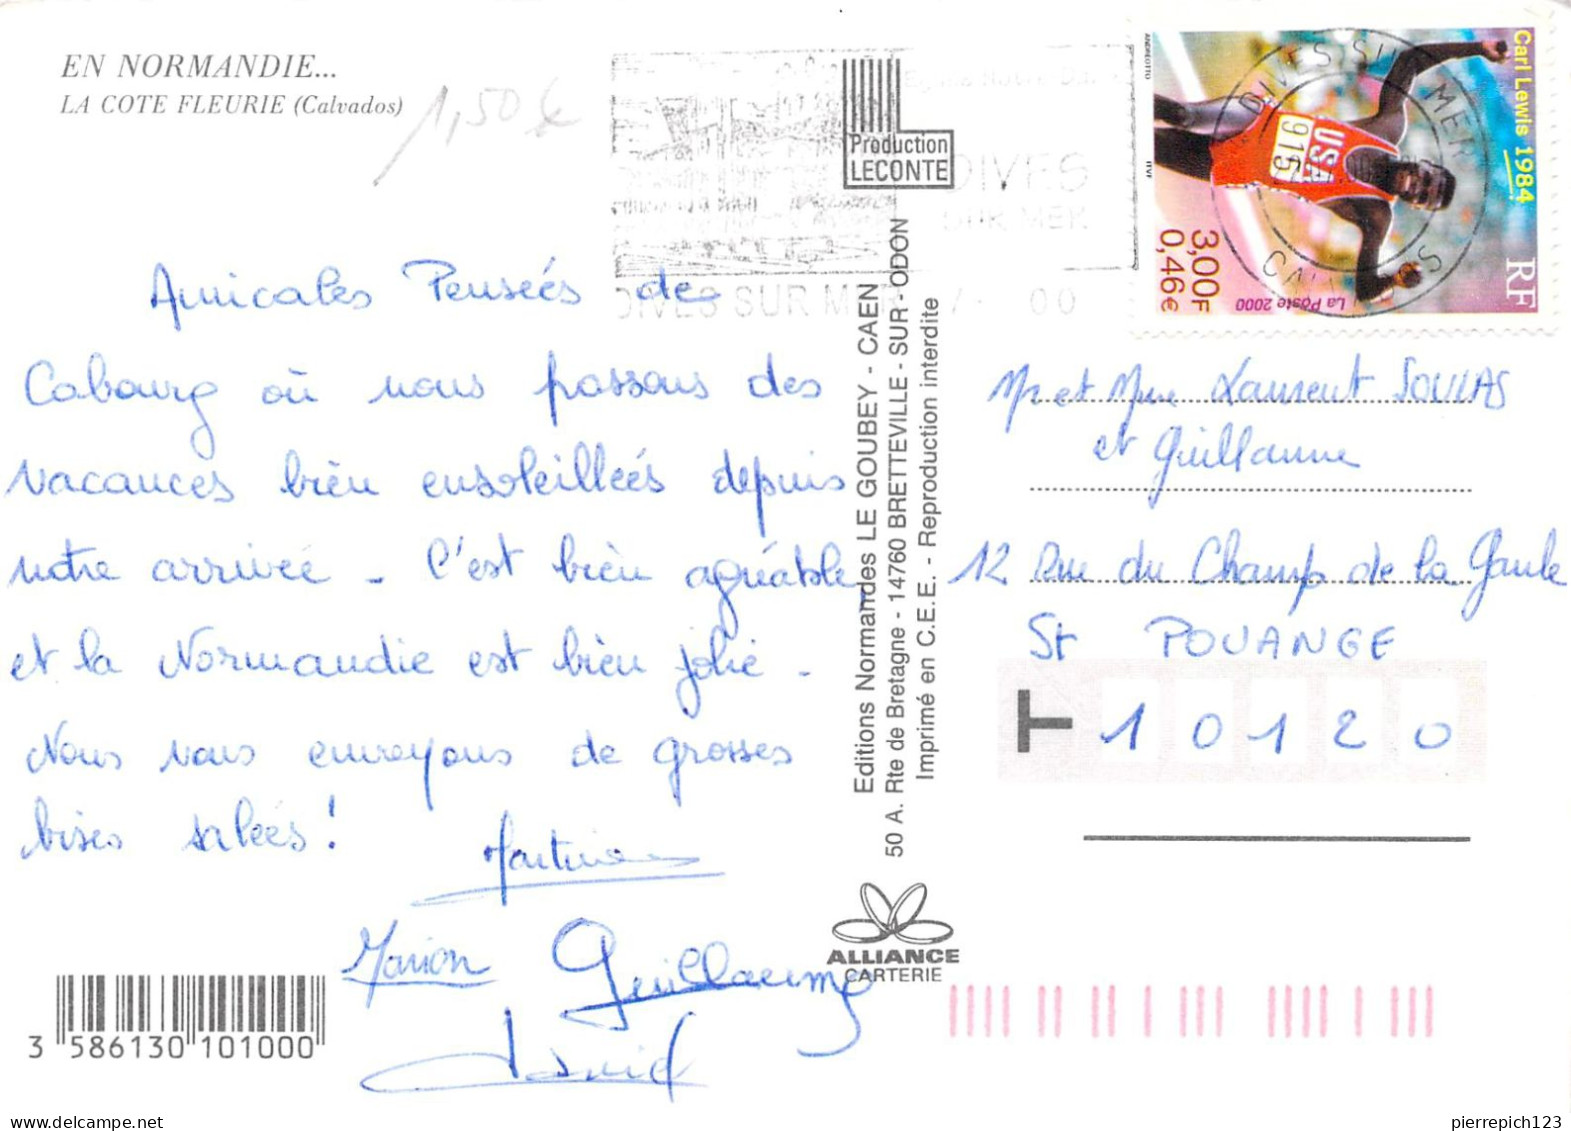 EN NORMANDIE...
LA COTE FLEURIE (Calvados)
1,50€
Production
LECONTE
DIVES
SUR MER
DIVES SUR MER
00
Carl Lewis 1984
RF
3,00F
0,46€
La Poste 2000
ANDREOTTO
ITVF
USA
915
DIVES SUR MER
CALVADOS
Amicales Pensées de
Cabourg où nous passons des
vacances bien ensoleillées depuis
notre arrivée - C'est bien agréable,
et la Normandie est bien jolie -
Nous vous envoyons de grosses
bises salées !
Martine
Marion
Guillaume
David
Editions Normandes LE GOUBEY - CAEN
50 A. Rte de Bretagne - 14760 BRETTEVILLE - SUR - ODON
Imprimé en C.E.E. - Reproduction interdite
Mr et Mme Laurent SOULAS
et Guillaume
12 Rue du Champ de la Gaule
St POUANGE
10120
ALLIANCE
CARTERIE
3 586130 101000
pierrepich123